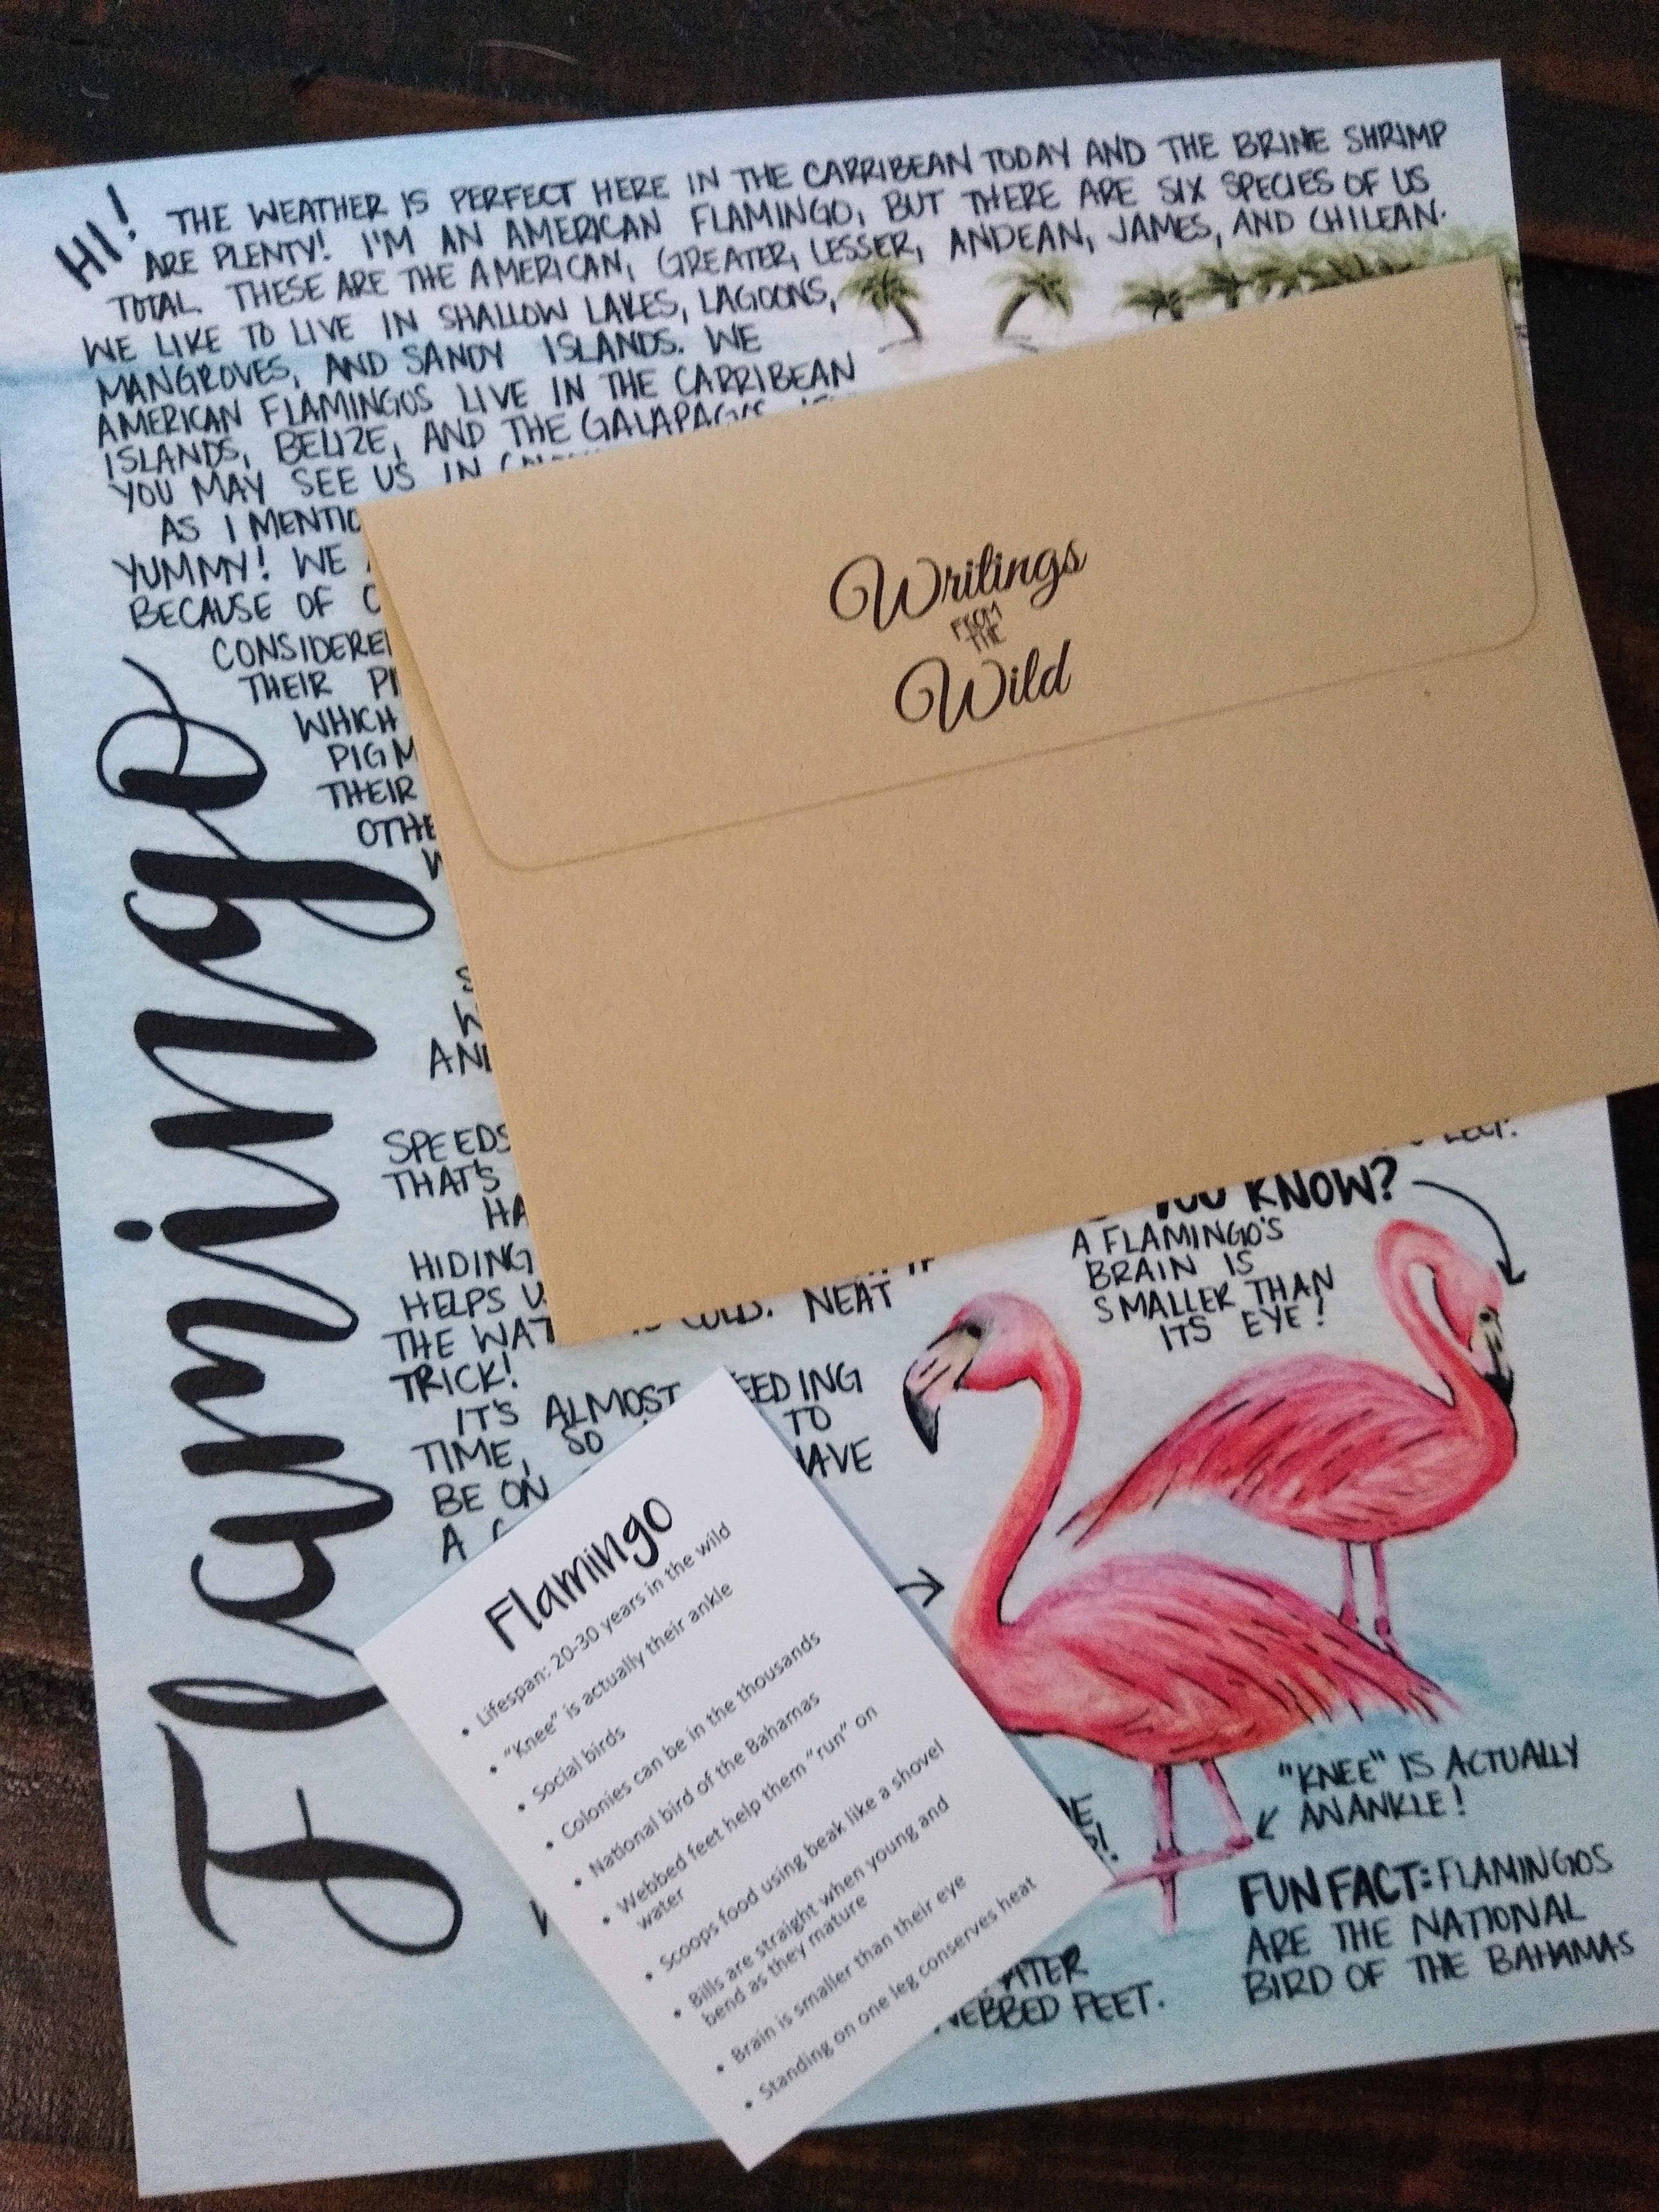 HI!
THE WEATHER IS PERFECT HERE IN THE CARRIBEAN TODAY AND THE BRINE SHRIMP
ARE PLENTY! I'M AN AMERICAN FLAMINGO, BUT THERE ARE SIX SPECIES OF US
TOTAL. THESE ARE THE AMERICAN, GREATER, LESSER, ANDEAN, JAMES, AND CHILEAN.
WE LIKE TO LIVE IN SHALLOW LAKES, LAGOONS,
MANGROVES, AND SANDY ISLANDS. WE
AMERICAN FLAMINGOS LIVE IN THE CARRIBEAN
ISLANDS, BELIZE, AND THE GALAPAGOS
YOU MAY SEE US IN
AS I MENTIO
YUMMY! WE
BECAUSE OF C
CONSIDERE
THEIR PI
WHICH
PIGM
THEIR
OTHE
W
AND
SPEEDS
THAT'S
HA
HIDING
HELPS U
THE WAT COLD. NEAT
TRICK!
IT'S ALMOST EEDING
TIME, SO TO
BE ON HAVE
A
Flamingo
Writings
FROM
THE
Wild
YOU KNOW?
A FLAMINGO'S
BRAIN IS
SMALLER THAN
ITS EYE!
Flamingo
• Lifespan: 20-30 years in the wild
• "Knee" is actually their ankle
• Social birds
• Colonies can be in the thousands
• National bird of the Bahamas
• Webbed feet help them "run" on
water
• Scoops food using beak like a shovel
• Bills are straight when young and
bend as they mature
• Brain is smaller than their eye
• Standing on one leg conserves heat
"KNEE" IS ACTUALLY
AN ANKLE!
FUN FACT: FLAMINGOS
ARE THE NATIONAL
BIRD OF THE BAHAMAS
ATER
WEBBED FEET.